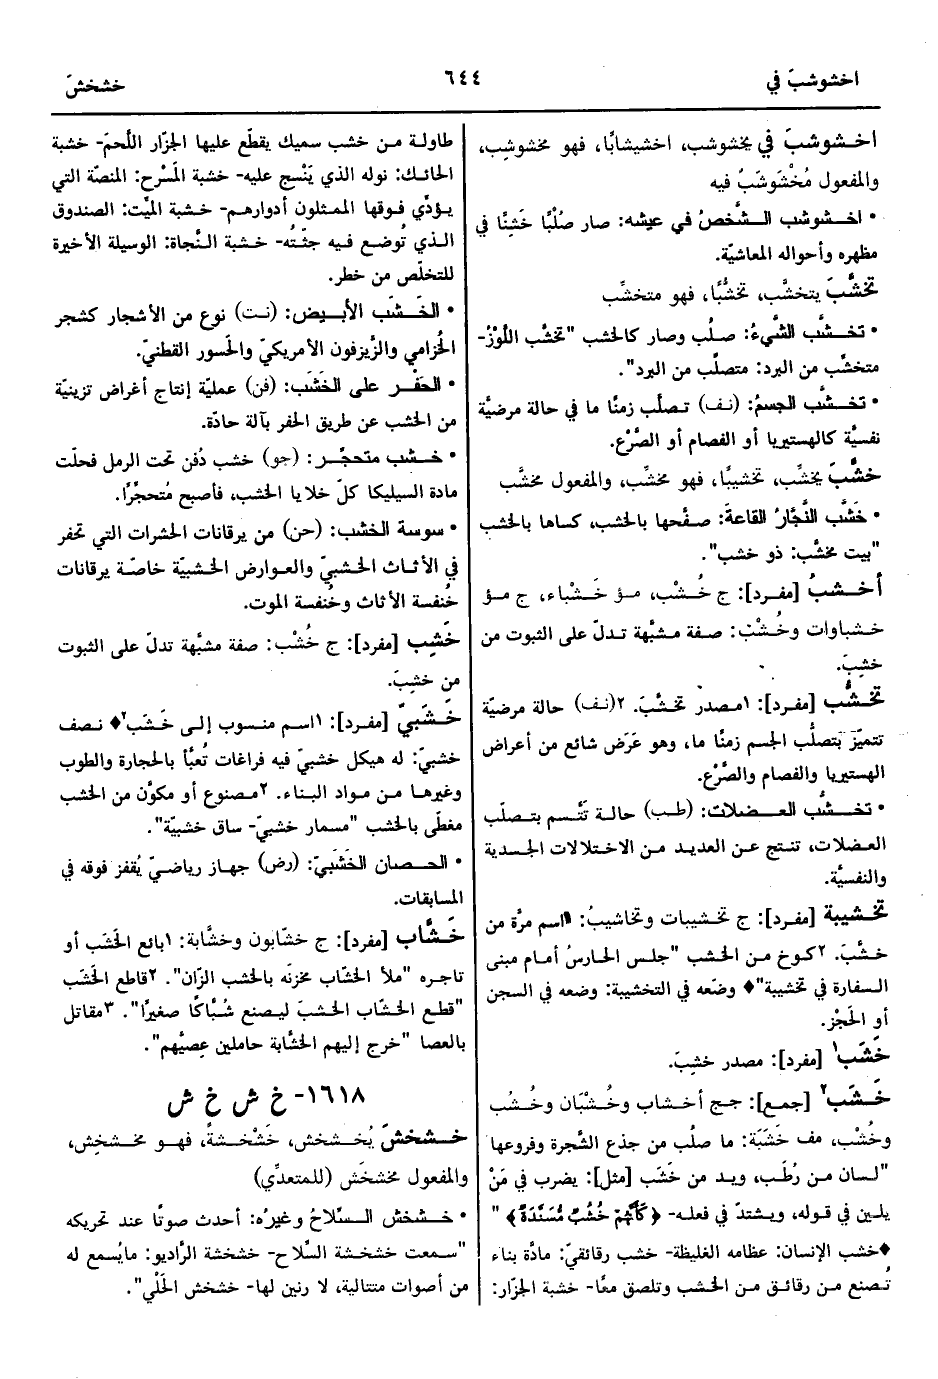 اخشوشبَ في
٦٤٤
خشخشَ
اخـشوشبَ في يخشوشب، اخشيشابًا، فهو مخشوشِب،
والمفعول مُخْشَوشَبٌ فيه
• اخـشوشب الـشَّخصُ في عيشه: صار صُلْبًا خَشِنًا في
مظهره وأحواله المعاشيّة.
تخشَّبَ يتخشَّب، تخشُّبًا، فهو متخشِّب
• تخـشَّب الشَّيءُ: صلُب وصار كالخشب "تخشَّب اللَّوْزُ-
متخشَّب من البرد: متصلِّب من البرد".
• تخـشَّب الجسمُ: (نـف) تـصلَّب زمنًا ما في حالة مرضيَّة
نفسيَّة كالهستيريا أو الفصام أو الصَّرْع.
خشَّبَ يخشِّب، تخشيبًا، فهو مخشِّب، والمفعول مخشَّب
• خَشَّب النَّجَّارُ القاعةَ: صفَّحها بالخشب، كساها بالخشب
"بيت مخشَّب: ذو خشب".
أخـشبُ [مفـرد]: ج خُـشْب، مـؤ خَـشْباء، ج مـؤ
خـشباوات وخُـشْب: صـفة مـشبَّهة تـدلّ على الثبوت من
خشِبَ.
تخـشُّب [مفرد]: ١مصدر تخـشَّبَ. ٢(نـف) حالة مرضيَّة
تتميَّز بتصلُّب الجسم زمنًا ما، وهو عَرَض شائع من أعراض
الهستيريا والفصام والصَّرْع.
• تخـشُّب العـضلات: (طـب) حالـة تتَّـسم بتـصلّب
العـضلات، تنتـج عـن العديـد مـن الاختلالات الجـسدية
والنفسيَّة.
تخـشيبة [مفـرد]: ج تخـشيبات وتخاشيبُ: ١اسم مرَّة من
خـشَّبَ. ٢كـوخ مـن الخـشب "جلـس الحـارسُ أمام مبنى
السفارة في تخشيبة"♦ وضَعه في التخشيبة: وضعه في السجن
أو الحَجْز.
خَشَب١ [مفرد]: مصدر خشِبَ.
خَـشَب٢ [جمـع]: جـج أخـشاب وخُـشْبان وخُـشُب
وخُشْب، مف خَشَبَة: ما صلُب من جذع الشَّجرة وفروعها
"لسان مـن رُطَـب، ويـد مـن خَـشَب [مثل]: يضرب في مَنْ
يلـين في قولـه، ويشتدّ في فعلـه- ﴿كَأَنَّهُمْ خُشُبٌ مُسَنَّدَةٌ﴾ "
♦خشب الإنسان: عظامه الغليظة- خشب رقائقيّ: مادَّة بناء
تُصنع مـن رقائـق مـن الخـشب وتلصق معًا- خشبة الجزَّار:
طاولة مـن خشب سميك يقطّع عليها الجزّار اللَّحمَ- خشبة
الحائـك: نوله الذي يَنْسج عليه- خشبة المَسْرح: المنصّة التي
يـؤدِّي فـوقها الممثلون أدوارهـم- خشبـة الميِّت: الصندوق
الـذي تُوضـع فيه جثّتُه- خـشبة النَّجاة: الوسيلة الأخيرة
للتخلّص من خطر.
• الخَـشَب الأبـيض: (نـت) نوع من الأشجار كشجر
الخُزامي والزِّيزفون الأمريكيّ والحَسور القطنيّ.
• الحَفْـر على الخَشَب: (فن) عمليّة إنتاج أغراض تزينيَّة
من الخشب عن طريق الحفر بآلة حادّة.
• خـشب متحجِّـر: (جو) خشب دُفن تحت الرمل فحلّت
مادة السيليكا كلّ خلايا الخشب، فأصبح مُتحجِّرًا.
• سوسة الخشب: (حن) من يرقانات الحشرات التي تحفر
في الأثـاث الخـشبيّ والعـوارض الخشبيَّة خاصّـة يرقانات
خُنفسة الأثاث وخُنفسة الموت.
خَشِب [مفرد]: ج خُشْب: صفة مشبَّهة تدلّ على الثبوت
من خشِبَ.
خَشَبيّ [مفرد]: ١اسم منسوب إلى خَشَب٢♦ نـصف
خشبيّ: له هيكل خشبيّ فيه فراغات تُعبَّأ بالحجارة والطوب
وغيرهـا مـن مواد البناء. ٢مصنوع أو مكوَّن من الخشب
مغطًّى بالخشب "مسمار خشبيّ- ساق خشبيّة".
• الحـصان الخَشَبيّ: (رض) جهاز رياضيّ يُقفز فوقه في
المسابقات.
خَشَّاب [مفرد]: ج خشّابون وخشَّابة: ١بائع الخَشَب أو
تاجره "ملأ الخشَّاب مخزنَه بالخشب الزّان". ٢قاطع الخَشَب
"قطـع الخـشَّاب الخـشبَ ليـصنع شُبَّاكًا صغيرًا". ٣مقاتل
بالعصا "خرج إليهم الخشَّابة حاملين عِصيَّهم".
١٦١٨- خ ش خ ش
خـشخشَ يُخـشخش، خَشْخـشةً، فهـو مخـشخِش،
والمفعول مخشخَش (للمتعدِّي)
• خـشخش الـسِّلاحُ وغيرُه: أحدث صوتًا عند تحريكه
"سـمعت خشخشة السِّلاح- خشخشة الرَّاديو: مايُسمع له
من أصوات متتالية، لا رنين لها- خشخش الحَلْي".